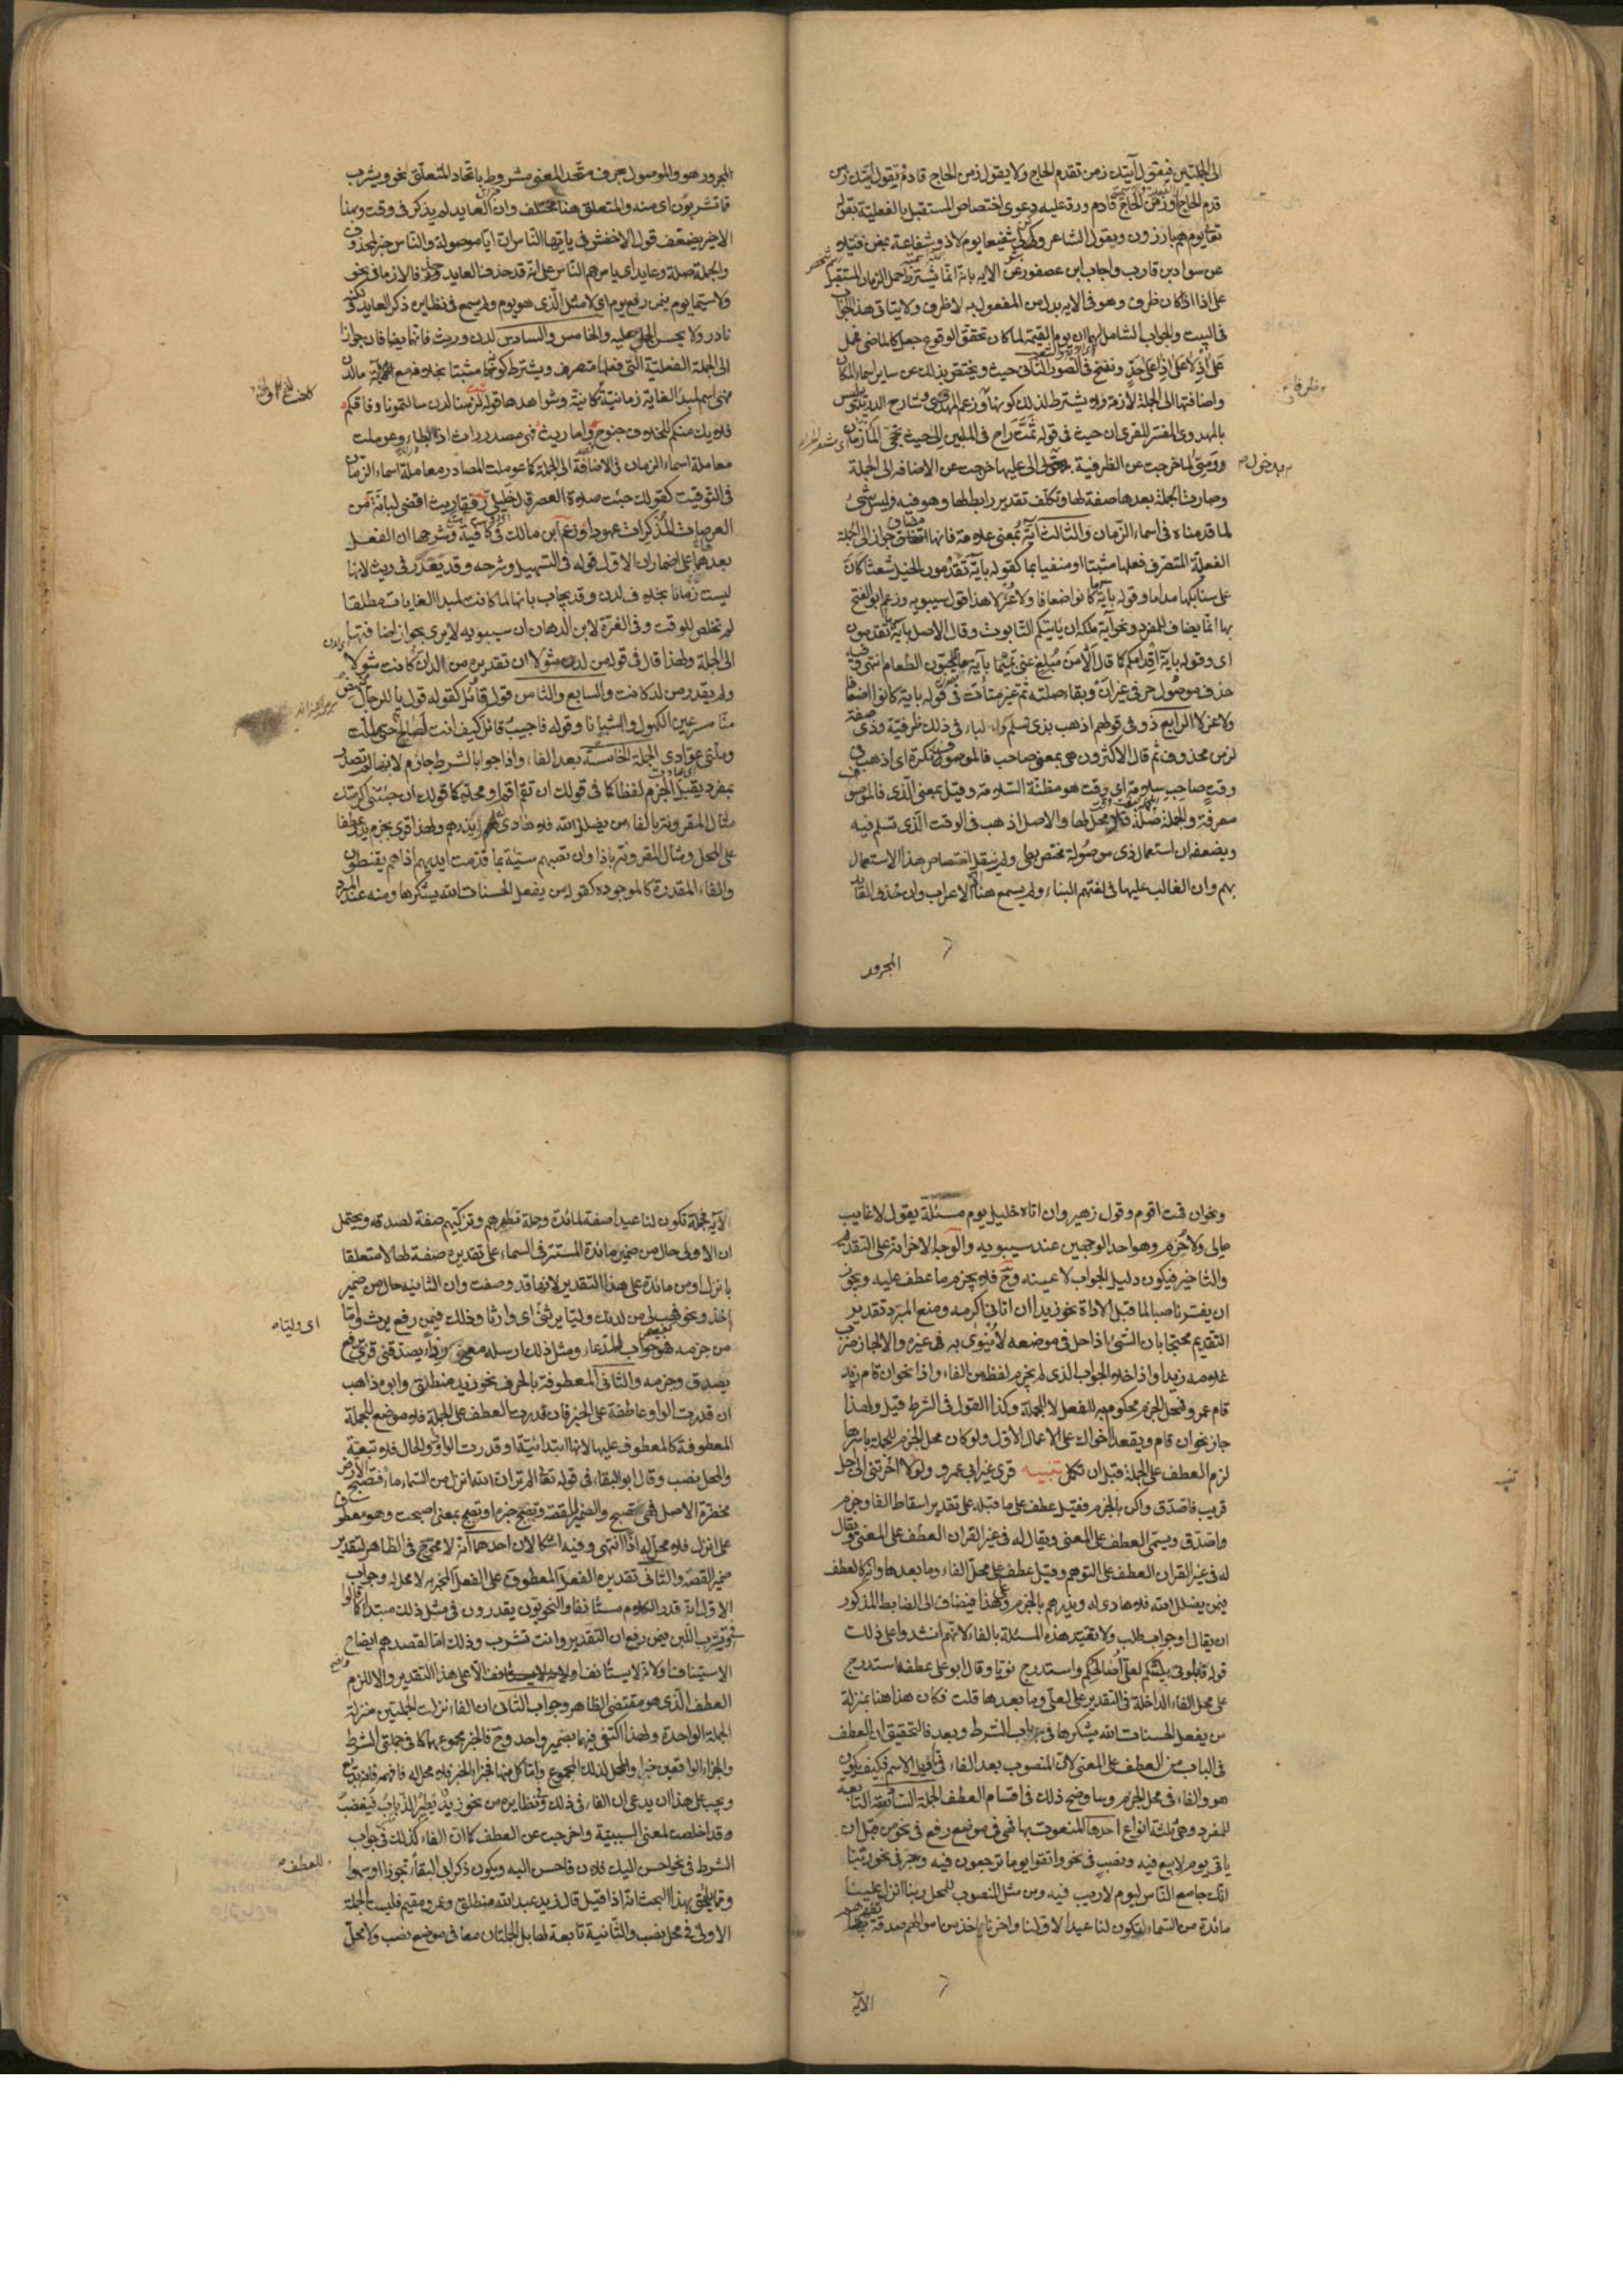 الى الجملتين فيقول آتيك زمن تقدم الحاج ولا يقول زمن الحاج قادم يقول اتيتك زمن
قدم الحاج او زمن الحاج قادم ورد عليه دعوى اختصاص المستقبل بالفعلية بقوله
تعالى يوم هم بارزون وبقول الشاعر وكن لى شفيعا يوم لا ذو شفاعة بمغن فتيلا
عن سواد بن قارب واجاب ابن عصفور عن الآيه بانه انما يشترط حمل الزمان المستقبل
على اذا اذا كان ظرفا وهو فى الآيه بدل من المفعول به لا ظرف ولا يتاتى هذا الجواب
فى البيت والجواب الشامل لهما ان يوم القيمة لما كان محقق الوقوع جعل كالماضى فحمل
على اذ لا على اذا على حد ونفخ فى الصور الثانى حيث ويختص بذلك عن ساير اسماء المكان
واضافتها الى الجملة لازمة ولا يشترط لذلك كونها ظرفا وزعم المهدوى شارح الدريدية وليس
بالمهدوى المفسر المقرى ان حيث فى قوله ثمت راح فى الملبين الى حيث تحجى المأزمان
ومنى لما خرجت عن الظرفية بدخول الى عليها خرجت عن الاضافه الى الجملة
وصارت الجملة بعدها صفة لها وتكلف تقدير رابط لها وهو فيه وليس بشئ
لما قدمناه فى اسماء الزمان والثالث آية بمعنى علامة فانها تضاف جوازا الى الجملة
الفعلية المتصرف فعلها مثبتا او منفيا بما كقوله بآية تقدمون الخيل شعثا كان
على سنابكها مداما وقوله بآية ما كانوا ضعافا ولا عزلا هذا قول سيبويه وزعم ابو الفتح
بها انما يضاف للمفرد ونحو آية ملكه ان ياتيكم التابوت وقال الاصل بآية ما تقدمون
اى وقوله بآية اقدامكم كما قال الا من مبلغ عنى تميما بآية ما يحبون الطعام انتهى وفيه
حذف موصول حرفى غير ان وبقاء صلته ثم غير متأت فى قوله باية ما كانوا ضعافا
ولا عزلا الرابع ذو فى قولهم اذهب بذى تسلم والباء فى ذلك ظرفية وذى صفة
لزمن محذوف ثم قال الاكثرون هى بمعنى صاحب فالموصوف نكرة اى اذهب فى
وقت صاحب سلامة اى وقت هو مظنة السلامة وقيل بمعنى الذى فالموصوف
معرفة والجملة صلة فلا محل لها والاصل اذهب فى الوقت الذى تسلم فيه
ويضعفه ان استعمال ذى موصولة مختص بطى ولم ينقل اختصاص هذا الاستعمال
بهم وان الغالب عليها فى لغتهم البناء ولم يسمع هنا الا الاعراب وان حذف العائد
المجرور
المجرور هو والموصول بحرف متحد المعنى مشروط باتحاد المتعلق نحو ويشرب
مما تشربون اى منه والمتعلق هنا مختلف وان العايد لم يذكر فى وقت وبهذا
الاخير يضعف قول الاخفش فى يا ايها الناس ان ايا موصولة والناس خبر لمحذوف
والجملة صلة وعايد اى يا من هم الناس على انه قد حذف العايد حذفا لازما فى نحو
ولا سيما يوم فيمن رفع يوم اى لا مثل الذى هو يوم ولم يسمع فى نظايره ذكر العايد ولكنه
نادر ولا يحسن الحمل عليه والخامس والسادس لدن وريث فانهما يضافان جوازا
الى الجملة الفعلية التى فعلها متصرف ويشترط كونه مثبتا بخلافه مع آية فاما لدن
فهى اسم لمبدأ الغاية زمانية او مكانية وشواهدها قوله لزمنا لدن سالمتمونا وفاقكم
فلا يك منكم للخلاف جنوح واما ريث فهى مصدر راث اذا ابطأ وعوملت
معاملة اسماء الزمان فى الاضافة الى الجملة كما عوملت المصادر معاملة اسماء الزمان
فى التوقيت كقولك جئت صلاة العصر قال خليلى رفقا ريث اقضى لبانة من
العرصات المذكرات عهودا وزعم ابن مالك فى كافيته وشرحها ان الفعل
بعدهما على اضمار ان والاول قوله فى التسهيل وشرحه وقد يعذر فى ريث لانها
ليست زمانا بخلاف لدن وقد يجاب بانها لما كانت لمبدأ الغايات مطلقا
لم تخلص للوقت وفى الغرة لابن الدهان ان سيبويه لا يرى بجواز اضافتها
الى الجملة ولهذا قال فى قوله من لد شولا ان تقديره من لد ان كانت شولا
ولم يقدر من لد كانت والسابع والثامن قول وقائل كقوله قول يا للرجال ينهض
منا مسرعين الكهول والشبانا وقوله فاجبت قائل كيف انت بصالح حتى مللت
وملنى عوادى الجملة الخامسة بعد الفاء واذا جوابا لشرط جازم لانها لم تصدر
بمفرد يقبل الجزم لفظا كما فى قولك ان تقم اقم او محلا كما فى قولك ان جئتنى اكرمتك
مثال المقرونة بالفاء من يضلل الله فلا هادى له ويذرهم ولهذا قرئ بجزم يذر عطفا
على المحل ومثال المقرونة باذا وان تصبهم سيئة بما قدمت ايديهم اذا هم يقنطون
والفاء المقدرة كالموجودة كقوله من يفعل الحسنات الله يشكرها ومنه عند المبرد
ونحو ان قمت اقوم وقول زهير وان اتاه خليل يوم مسئلة يقول لا غايب
مالى ولا حرم وهو احد الوجهين عند سيبويه والوجه الاخر انه على التقديم
والتاخير فيكون دليل الجواب لا عينه وح فلا يجزم ما عطف عليه ويجوز
ان يفسر ناصبا لما قبل الاداة نحو زيدا ان اتانى اكرمه ومنع المبرد تقدير
التقديم محتجا بان الشئ اذا حل فى موضعه لا ينوى به فى غيره والا لجاز ضرب
غلامه زيدا واذا خلا الجواب الذى لم يجزم لفظه من الفاء واذا نحو ان قام زيد
قام عمرو فمحل الجزم محكوم به للفعل لا للجملة وكذا القول فى الشرط قيل ولهذا
جاز نحو ان قام ويقعدا اخواك على الاعمال الاول ولو كان محل الجزم للجملة باسرها
لزم العطف على الجملة قبل ان تكمل تنبيه قرئ غير ابى عمرو ولولا اخرتنى الى اجل
تنبيه
قريب فاصدق واكن بالجزم فقيل عطف على ما قبله على تقدير اسقاط الفاء وجزم
واصدق ويسمى العطف على المعنى ويقال له فى غير القران العطف على المعنى ويقال
له فى غير القران العطف على التوهم وقيل عطف على محل الفاء وما بعدها وانه كالعطف
فيمن يضلل الله فلا هادى له ويذرهم بالجزم وعلى هذا فيضاف الى الضابط المذكور
ان يقال او جواب طلب ولا تقيد هذه المسئلة بالفاء لانهم انشدوا على ذلك
قوله فابلونى بليتكم لعلى اصالحكم واستدرج نويا وقال ابو على عطف استدرج
على محل الفاء الداخلة فى التقدير على لعلى وما بعدها قلت فكان هذا هنا بمنزلة
من يفعل الحسنات الله يشكرها فى باب الشرط وبعد فالتحقيق ان العطف
فى الباب من العطف على المعنى لان المنصوب بعد الفاء فى تاويل الاسم فكيف يكون
هو والفاء فى محل الجزم وساوضح ذلك فى اقسام العطف الجملة السادسة التابعة
للمفرد وهى ثلثة انواع احدها المنعوت بها فهى فى موضع رفع فى نحو من قبل ان
ياتى يوم لا بيع فيه ونصب فى نحو واتقوا يوما ترجعون فيه وجر فى نحو ربنا
انك جامع الناس ليوم لا ريب فيه ومن مثل المنصوب المحل ربنا انزل علينا
مائدة من السماء تكون لنا عيدا لاولنا واخرنا خذ من اموالهم صدقة تطهرهم
الآية
الآية فجملة تكون لنا عيدا صفة لمائدة وجملة تطهرهم وتزكيهم صفة لصدقة ويحتمل
ان الاولى حال من ضمير مائدة المستتر فى السماء على تقديره صفة لها لا متعلقا
بانزل او من مائدة على هذا التقدير لانها قد وصفت وان الثانيه حال من ضمير
خذ ونحو فهب لى من لدنك وليا يرثنى اى وليا وارثا وذلك فيمن رفع يرث واما
اى وليا
من جزمه فهو جواب للدعاء ومثل ذلك ارسله معى ردءا يصدقنى قرئ برفع
يصدق وجزمه والثانى المعطوفة بالحرف نحو زيد منطلق وابوه ذاهب
ان قدرت الواو عاطفة على الخبر فان قدرت العطف على الجملة فلا موضع للجملة
المعطوفة كالمعطوف عليها لانها ابتدائية او قدرت الواو للحال فلا تبعية
والمحل نصب وقال ابو البقاء فى قوله تعالى الم تر ان الله انزل من السماء ماء فتصبح الارض
مخضرة الاصل فهى تصبح والضمير للقصة وتصبح خبره او تصبح بمعنى اصبحت وهو معطوف
على انزل فلا محل له اذا انتهى وفيه اشكالان احدهما انه لا محوج فى الظاهر لتقدير
ضمير القصة والثانى تقديره الفعل المعطوف على الفعل المخبر به لا محل له وجواب
الاول انه قدر الكلام مستأنفا والنحويون يقدرون فى مثل ذلك مبتدا كما قالوا
فى وتشرب اللبن فيمن رفع ان التقدير وانت تشرب وذلك اما لقصدهم ايضاح
الاستيناف او لانه لا يستأنف الا على هذا التقدير والا لزم
العطف الذى هو مقتضى الظاهر وجواب الثانى ان الفاء نزلت الجملتين منزلة
الجملة الواحدة ولهذا اكتفى فيهما بضمير واحد وح فالخبر مجموعهما كما فى جملتى الشرط
والجزاء الواقعتين خبرا والمحل لذلك المجموع واما كل منهما فجزء الخبر فلا محل له فافهمه فانه بديع
ويجب على هذا ان يدعى ان الفاء فى ذلك وفى نظايره من نحو زيد يطير الذباب فيغضب
قد اخلصت لمعنى السببية واخرجت عن العطف كما ان الفاء كذلك فى جواب
للعطف
الشرط فى نحو احسن اليك فلان فاحسن اليه ويكون ذكر ابى البقاء تجوزا او سهوا
ومما يلحق بهذا البحث انه اذا قيل قال زيد عبد الله منطلق وعمرو مقيم فليست الجملة
الاولى فى محل نصب والثانية تابعة لها بل الجملتان معا فى موضع نصب ولا محل